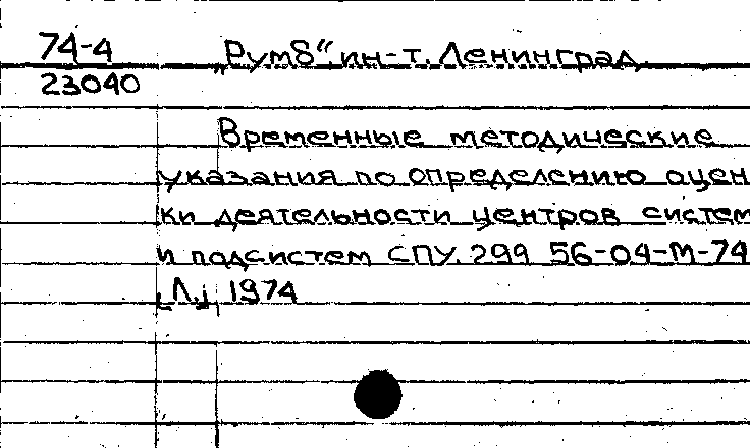 74-4
23040
„Румб", ин-т. Ленинград.
Временные методические
указания по определению оцен
ки деятельности центров систем
и подсистем СПУ. 299 56-04-М-74
[Л.], 1974